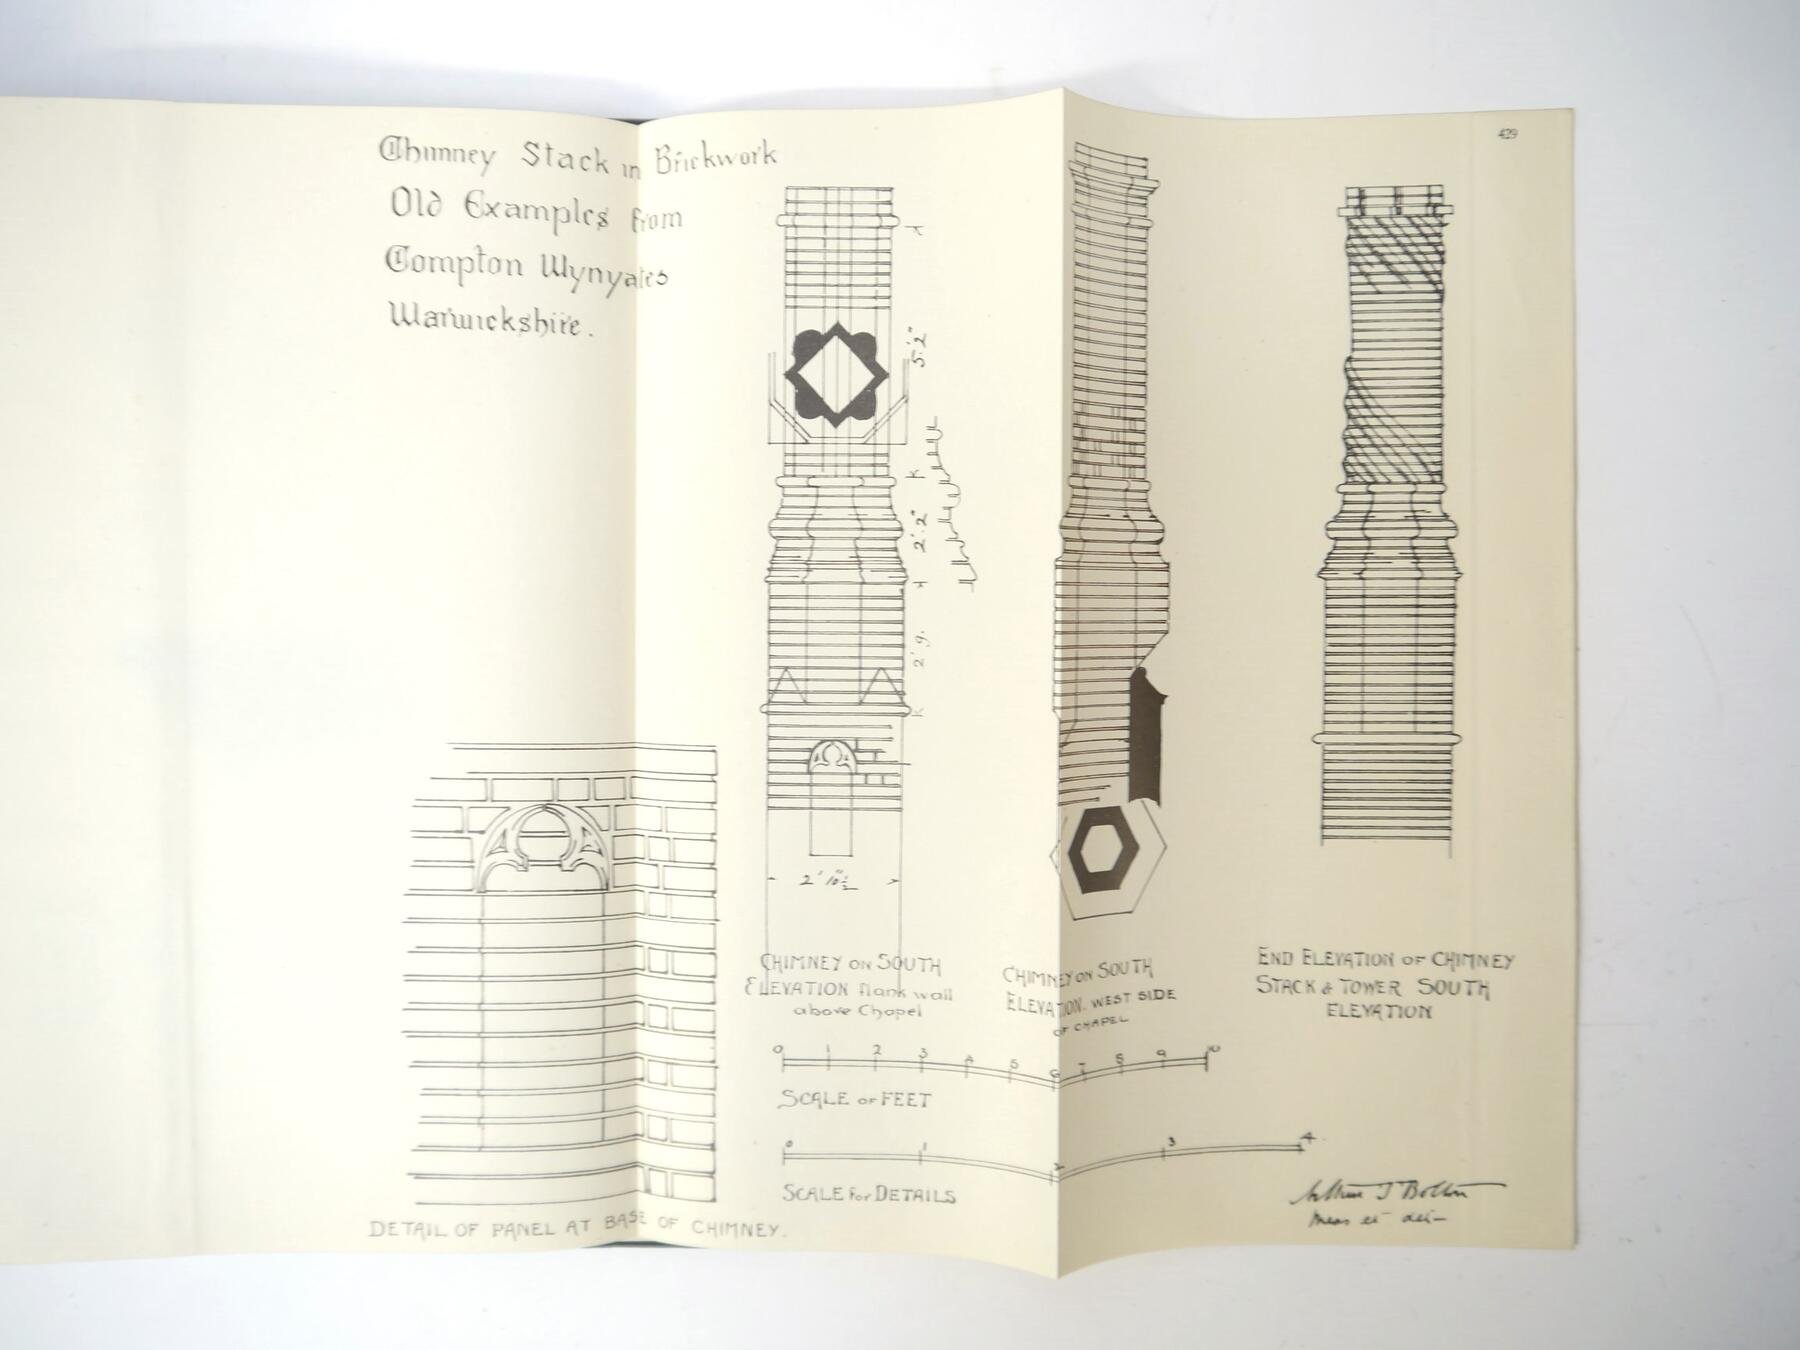 429
Chimney Stack in Brickwork
Old Examples from
Compton Wynyates
Warwickshire.
5'.2"
2'.2"
2'9.
2' 10½"
CHIMNEY ON SOUTH
ELEVATION flank wall
above Chapel
CHIMNEY ON SOUTH
ELEVATION. WEST SIDE
OF CHAPEL
END ELEVATION OF CHIMNEY
STACK & TOWER SOUTH
ELEVATION
0 1 2 3 4 5 6 7 8 9 10
SCALE OF FEET
0 1 2 3 4
SCALE for DETAILS
DETAIL OF PANEL AT BASE OF CHIMNEY.
Arthur T Bolton
Meas et del